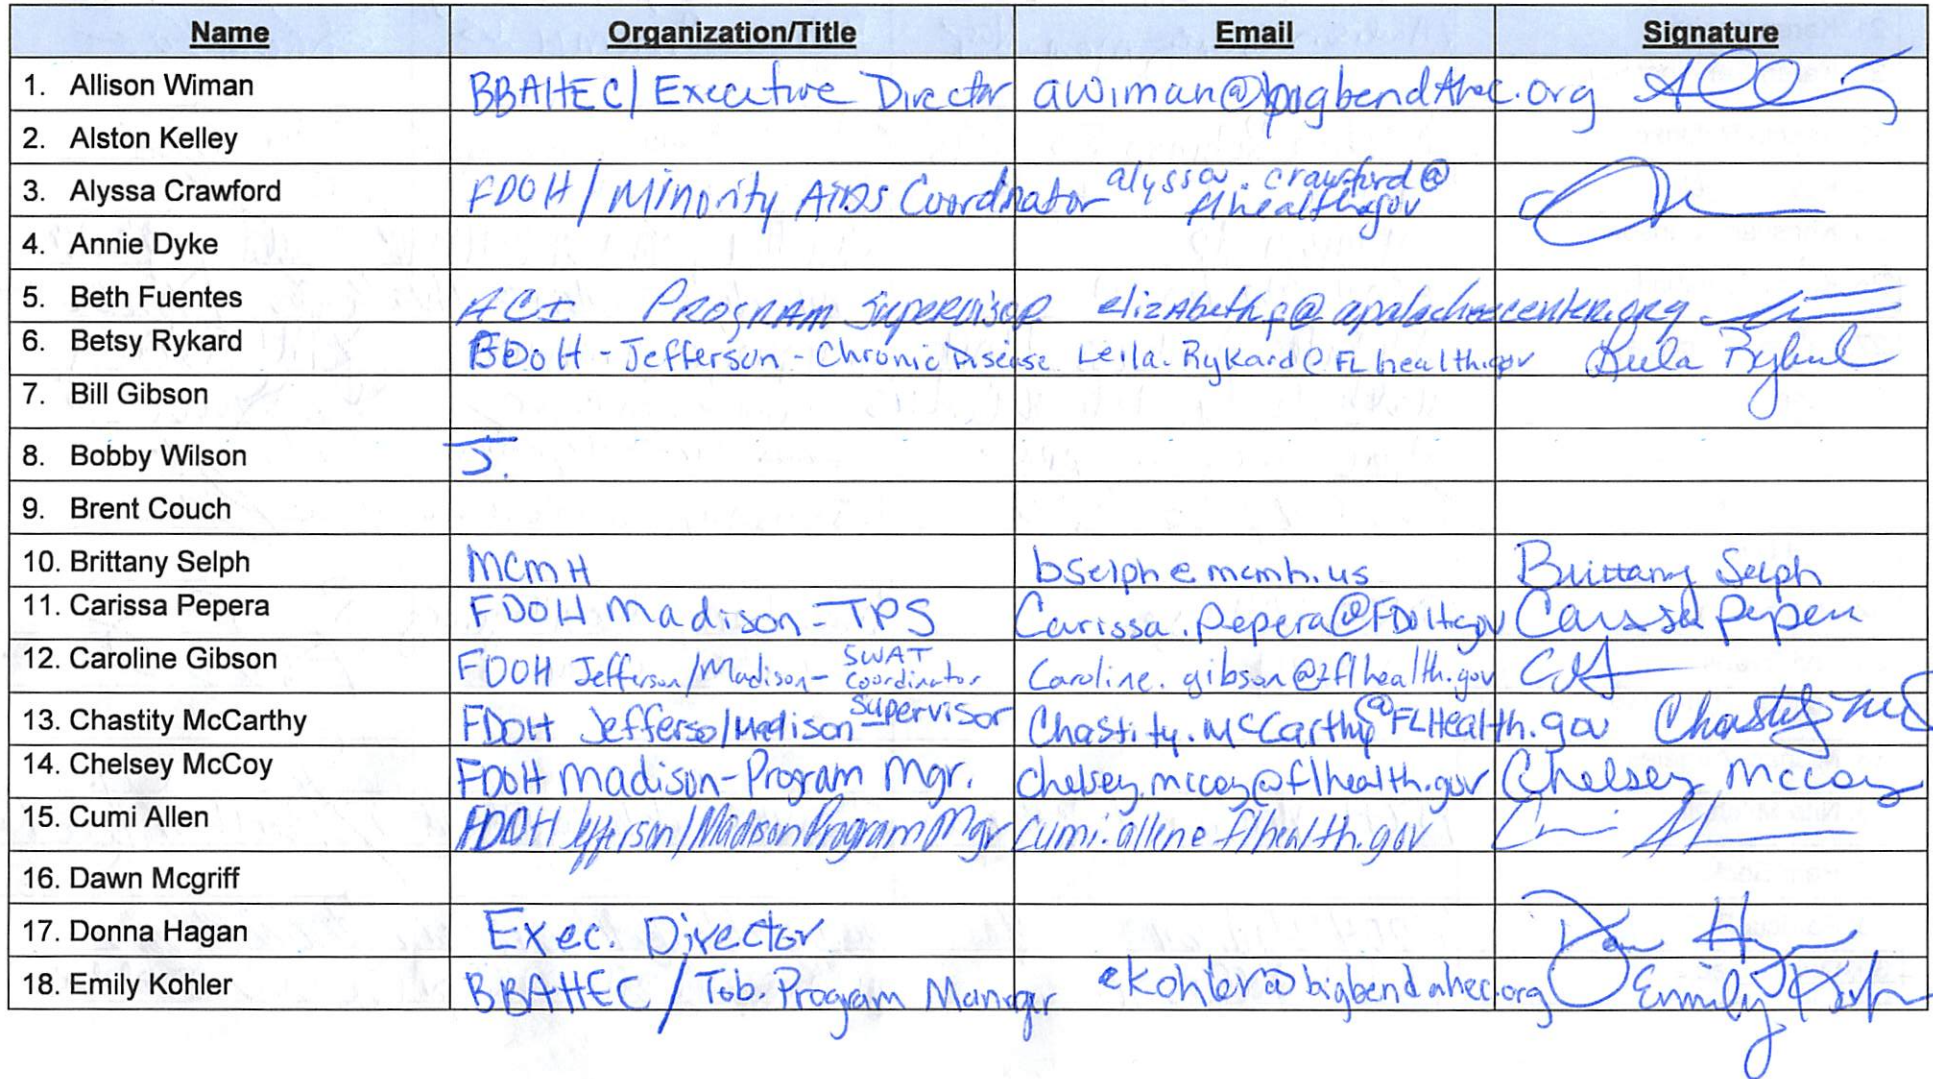 Name Organization/Title Email Signature
1. Allison Wiman BBAHEC/Executive Director awiman@bigbendahec.org
2. Alston Kelley
3. Alyssa Crawford FDOH/Minority AIDS Coordinator alyssa.crawford@
flhealth.gov
4. Annie Dyke
5. Beth Fuentes ACI Program Supervisor elizabethf@apalacheecenter.org
6. Betsy Rykard FDOH - Jefferson - Chronic Disease Leila.Rykard@FLhealth.gov
7. Bill Gibson
8. Bobby Wilson
9. Brent Couch
10. Brittany Selph MCMH bselph@mcmh.us Brittany Selph
11. Carissa Pepera FDOH Madison - TPS Carissa.Pepera@FDOH.gov Carissa Pepera
12. Caroline Gibson FDOH Jefferson/Madison - SWAT
Coordinator Caroline.gibson@flhealth.gov
13. Chastity McCarthy FDOH Jefferso/Madison Supervisor Chastity.McCarthy@FLHealth.gov Chastity
14. Chelsey McCoy FDOH Madison-Program Mgr. chelsey.mccoy@flhealth.gov Chelsey McCoy
15. Cumi Allen FDOH Jefferson/Madison Program Mgr cumi.allen@flhealth.gov
16. Dawn Mcgriff
17. Donna Hagan Exec. Director
18. Emily Kohler BBAHEC / Tob. Program Manager ekohler@bigbendahec.org Emily